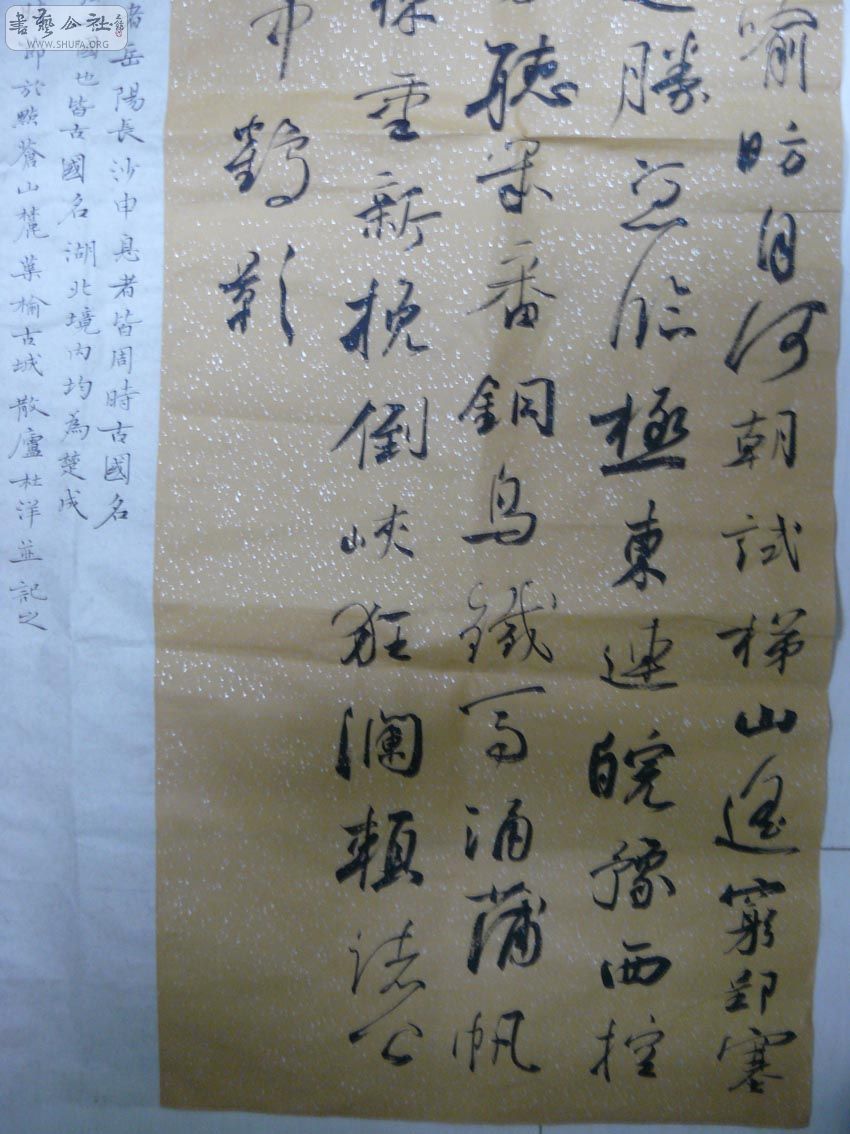 喻昉自何朝試梯山遥窮郢塞
勝急臨極東連皖豫西控
聽幾番銅鳥鐵馬涌蒲帆
重新挽倒峽狂瀾賴諸公
中鶴影
者岳陽長沙申息者皆周時古國名
國也皆古國名湖北境内均為楚成
即於點蒼山麓葉榆古城散廬杜洋並記之
書藝公社
WWW.SHUFA.ORG